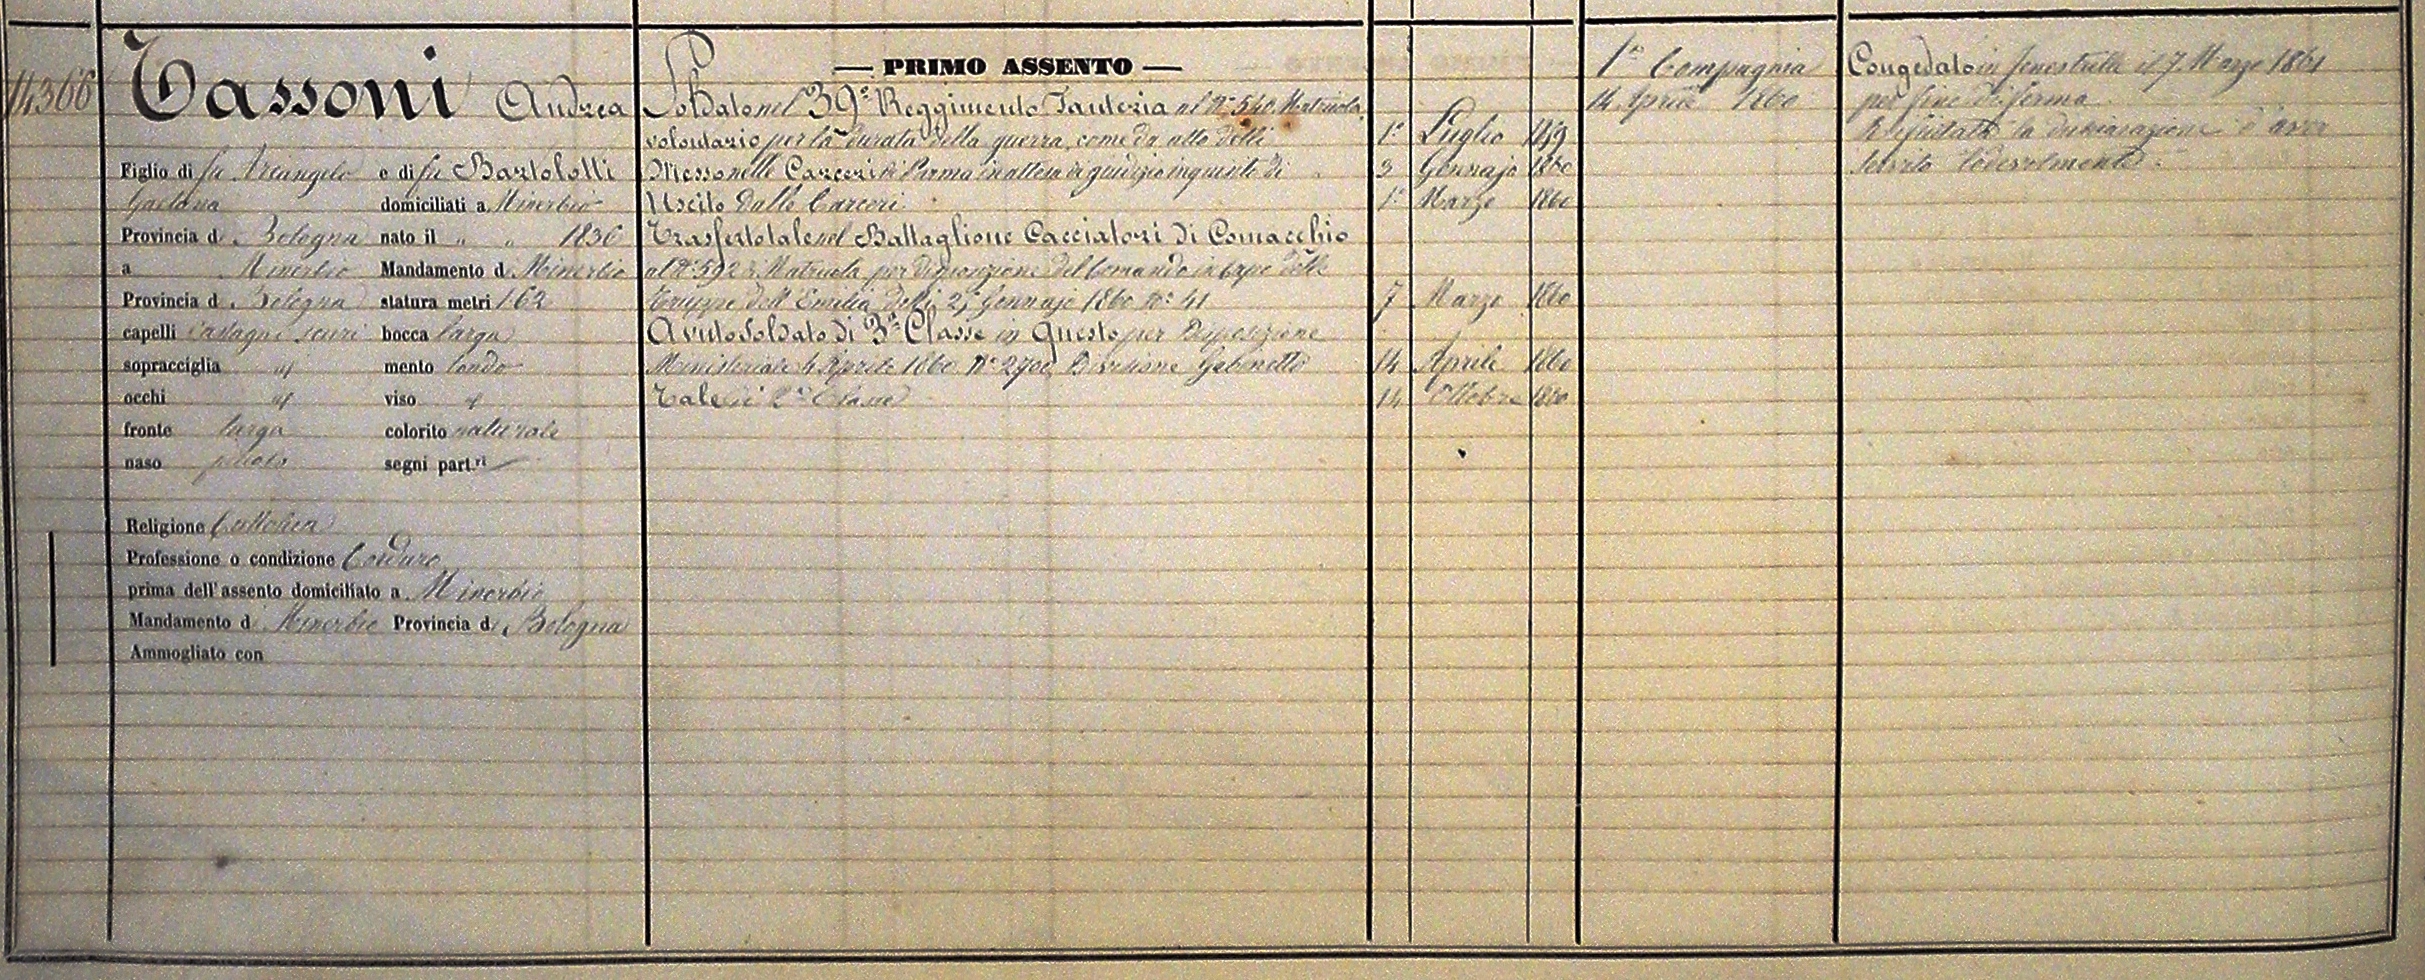 14366
Tassoni Andrea
Figlio di fu Arcangelo e di fu Bartolotti
Gaetana domiciliati a Minerbio
Provincia di Bologna nato il " " 1836
a Minerbio Mandamento di Minerbio
Provincia di Bologna statura metri 1.62
capelli castagni scuri bocca larga
sopracciglia id mento tondo
occhi id viso id
fronte larga colorito naturale
naso
segni part.ri
Religione Cattolica
Professione o condizione
prima dell'assento domiciliato a Minerbio
Mandamento di Minerbio Provincia di Bologna
Ammogliato con
— PRIMO ASSENTO —
Soldato nel 39° Reggimento Fanteria al N° 540 Matricola,
volontario per la durata della guerra, come da atto delli 1° Luglio 1859
Messo nelle Carceri di Parma in attesa di giudizio inquisito di " 3 Gennajo 1860
Uscito dalle Carceri 1° Marzo 1860
Trasferto tale nel Battaglione Cacciatori di Comacchio
al N° 592 di Matricola per disposizione del Comando in Capo delle
Truppe dell'Emilia delli 25 Gennajo 1860 N° 41 7 Marzo 1860
Avuto Soldato di 3a Classe in Questo per Disposizione
Ministeriale 4 Aprile 1860 N° 2700 Divisione Gabinetto 14 Aprile 1860
Tale di 2a Classe 14 Ottobre 1860
1a Compagnia
14 Aprile 1860
Congedato in Fenestrelle il 7 Marzo 1861
per fine di ferma
la dichiarazione d'aver
servito lodevolmente.